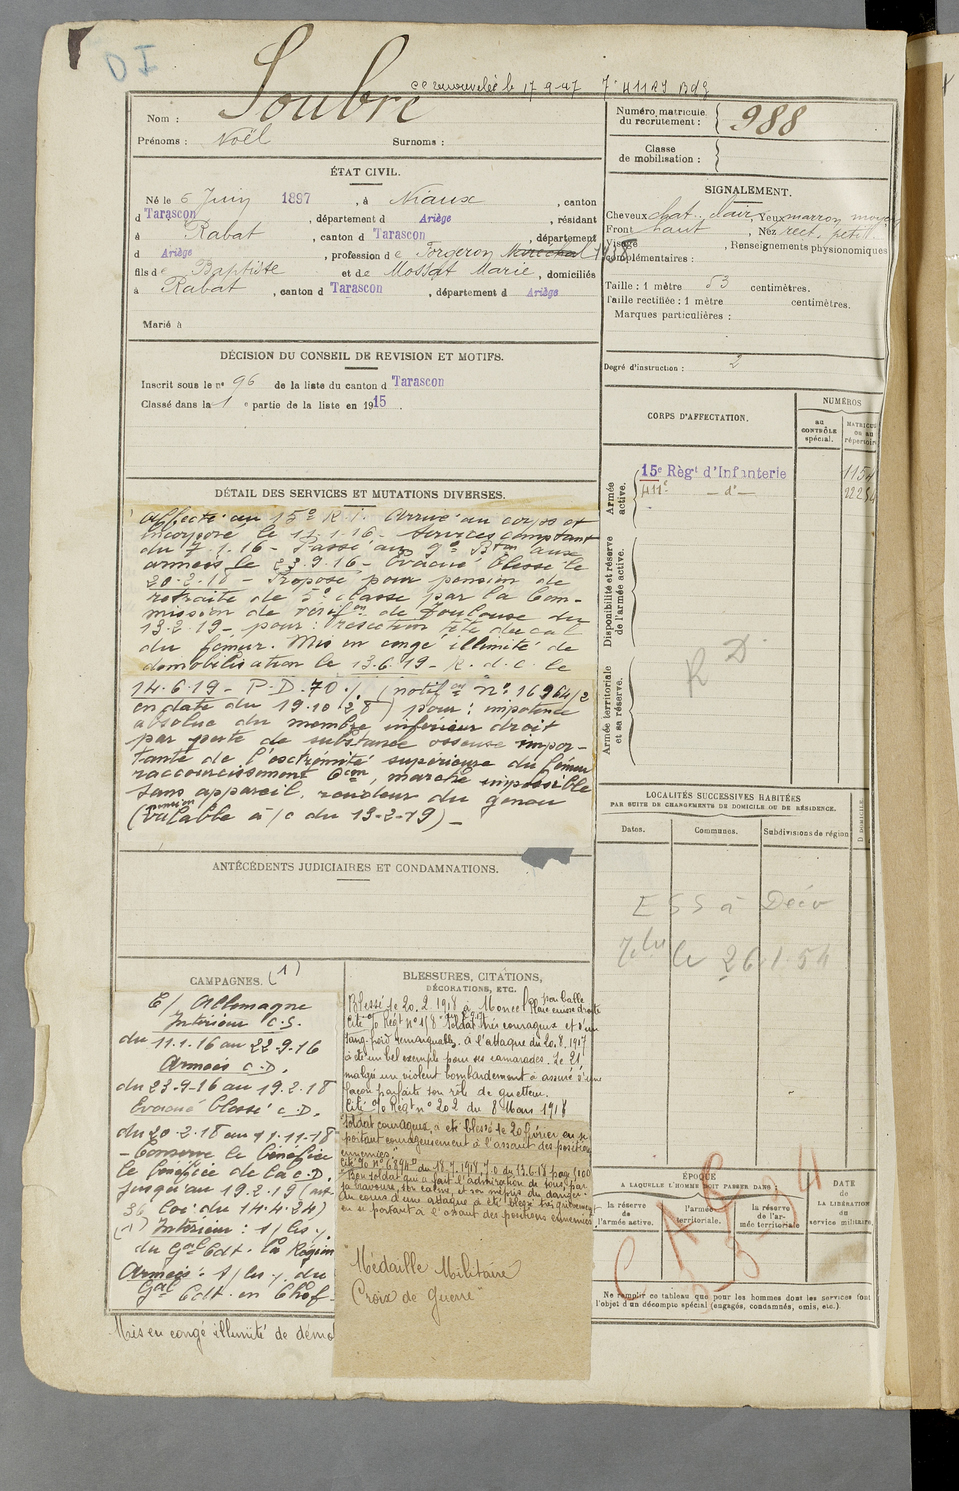 DI
Soubre
cc renouvelée le 17-9-47
Nom :
Prénoms : Noël Surnoms :
Numéro matricule
du recrutement : 988
Classe
de mobilisation :
ÉTAT CIVIL.
Né le 5 Juin 1897, à Niaux, canton
d Tarascon, département d Ariège, résidant
à Rabat, canton d Tarascon, département
d Ariège, profession de Forgeron Maréchal
fils de Baptiste et de Mossat Marie, domiciliés
à Rabat, canton d Tarascon, département d Ariège
Marié à
SIGNALEMENT.
Cheveux chat. clair, Yeux marron moyen
Front haut, Nez rect. petit
Visage , Renseignements physionomiques
complémentaires :
Taille : 1 mètre 53 centimètres.
Taille rectifiée : 1 mètre centimètres.
Marques particulières :
Degré d'instruction : 2
DÉCISION DU CONSEIL DE REVISION ET MOTIFS.
Inscrit sous le n° 96 de la liste du canton d Tarascon
Classé dans la 1e partie de la liste en 1915.
CORPS D'AFFECTATION.
NUMÉROS
au
CONTRÔLE
spécial.
MATRICULE
ou au
répertoire
Armée
active.
15e Régt d'Infanterie 1154
411e — d° —
Disponibilité et réserve
de l'armée active.
Armée territoriale
et sa réserve.
R D
DÉTAIL DES SERVICES ET MUTATIONS DIVERSES.
Affecté au 15e R.I. Arrivé au corps et
incorporé le 11-1-16 - Services comptant
du 7-1-16 - Passé au 9e Bton aux
armées le 23-9-16 - Évacué blessé le
20-2-18 - Proposé pour pension de
retraite de 5e classe par la Com-
mission de réf. de Toulouse du
13-2-19 - pour : résection tête du col
du fémur. Mis en congé illimité de
démobilisation le 13-6-19 - R. d. c. le
14-6-19 - P.D. 70 % (notifon n° 16964/2
en date du 19-10-28) pour : impotence
absolue du membre inférieur droit
par perte de substance osseuse impor-
tante de l'extrémité supérieure du fémur
raccourcissement 6cm, marche impossible
sans appareil, raideur du genou
(pension valable à/c du 13-2-19) -
ANTÉCÉDENTS JUDICIAIRES ET CONDAMNATIONS.
LOCALITÉS SUCCESSIVES HABITÉES
PAR SUITE DE CHANGEMENTS DE DOMICILE OU DE RÉSIDENCE.
Dates. Communes. Subdivisions de région
le 26.1.54
CAMPAGNES. (1)
C/ Allemagne
Intérieur C.S.
du 11.1.16 au 22-9-16
Armées C.D.
du 23-9-16 au 19.2.18
Évacué blessé C.D.
du 20-2-18 au 11-11-18
- Conserve le bénéfice
le bénéfice de la C.D.
jusqu'au 19.2.19 (art.
36 loi du 14-4-24)
(1) Intérieur :
du Gal Cdt. la Région
Armées : du
Gal Cdt. en Chef
BLESSURES, CITATIONS,
DÉCORATIONS, ETC.
Blessé le 20.2.1918 à par balle
Plaie cuisse droite
Cité O/o Régt n° 118 Soldat très courageux et d'un
sang-froid remarquable. à l'attaque du 20.8.1917
a été un bel exemple pour ses camarades. Le 21,
malgré un violent bombardement a assuré d'une
façon parfaite son rôle de guetteur.
Cité O/o Régt n° 202 du 8 Mars 1918
"Soldat courageux, a été blessé le 20 février en se
portant courageusement à l'assaut des positions
ennemies."
Cité O/o n° 6894 D du 18.7.1918 J.O du 13.6.18 page
"Bon soldat qui a fait l'admiration de tous, par
sa bravoure, son calme, et son mépris du danger.
Au cours d'une attaque a été blessé très grièvement
en se portant à l'assaut des positions ennemies
"Médaille Militaire
Croix de Guerre"
ÉPOQUE
A LAQUELLE L'HOMME DOIT PASSER DANS :
la réserve
de
l'armée active.
l'armée
territoriale.
la réserve
de l'ar-
mée territoriale
DATE
de
LA LIBÉRATION
du
service militaire.
Ne remplir ce tableau que pour les hommes dont les services font
l'objet d'un décompte spécial (engagés, condamnés, omis, etc.).
Mis en congé illimité de démo